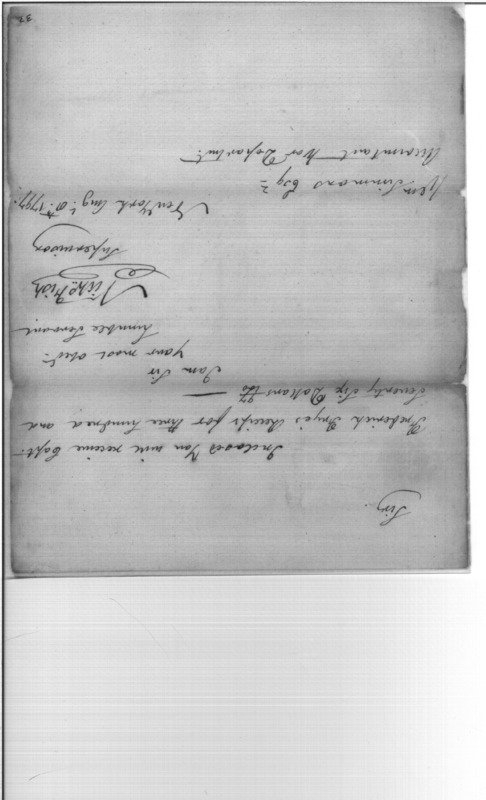 Sir,
Inclosed You will receive Capt.
Frederick Frye's Receipt for three hundred and
Seventy Six Dollars
I am Sir
your most obed.t
humble Servant
Nichs. Fish
Supervisor
New York Aug.t 8th 1797.
Wm Simmons Esqr
Accountant War Department